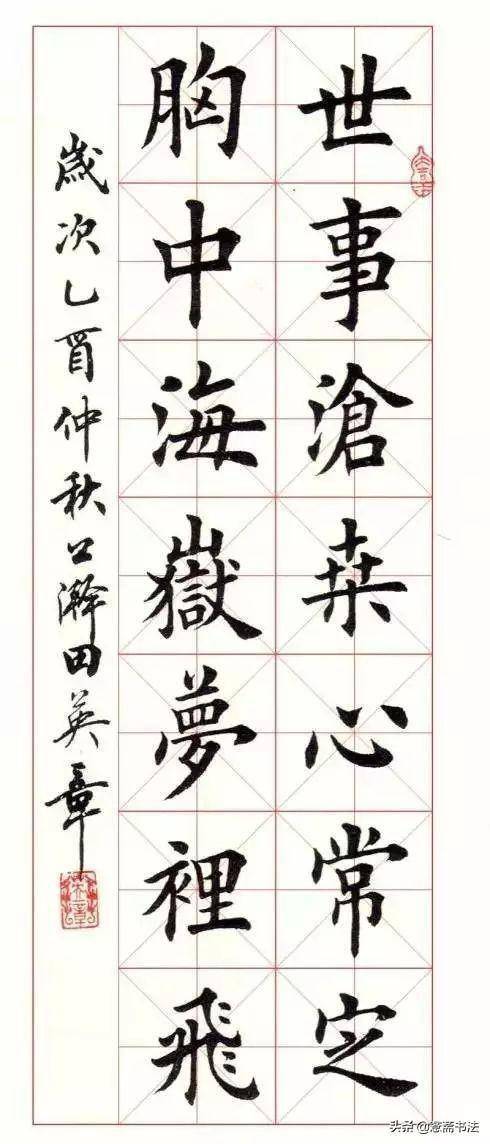 世事滄桒心常定
胸中海嶽夢裡飛
歲次乙酉仲秋以瀚田英章
头条@寬斋书法